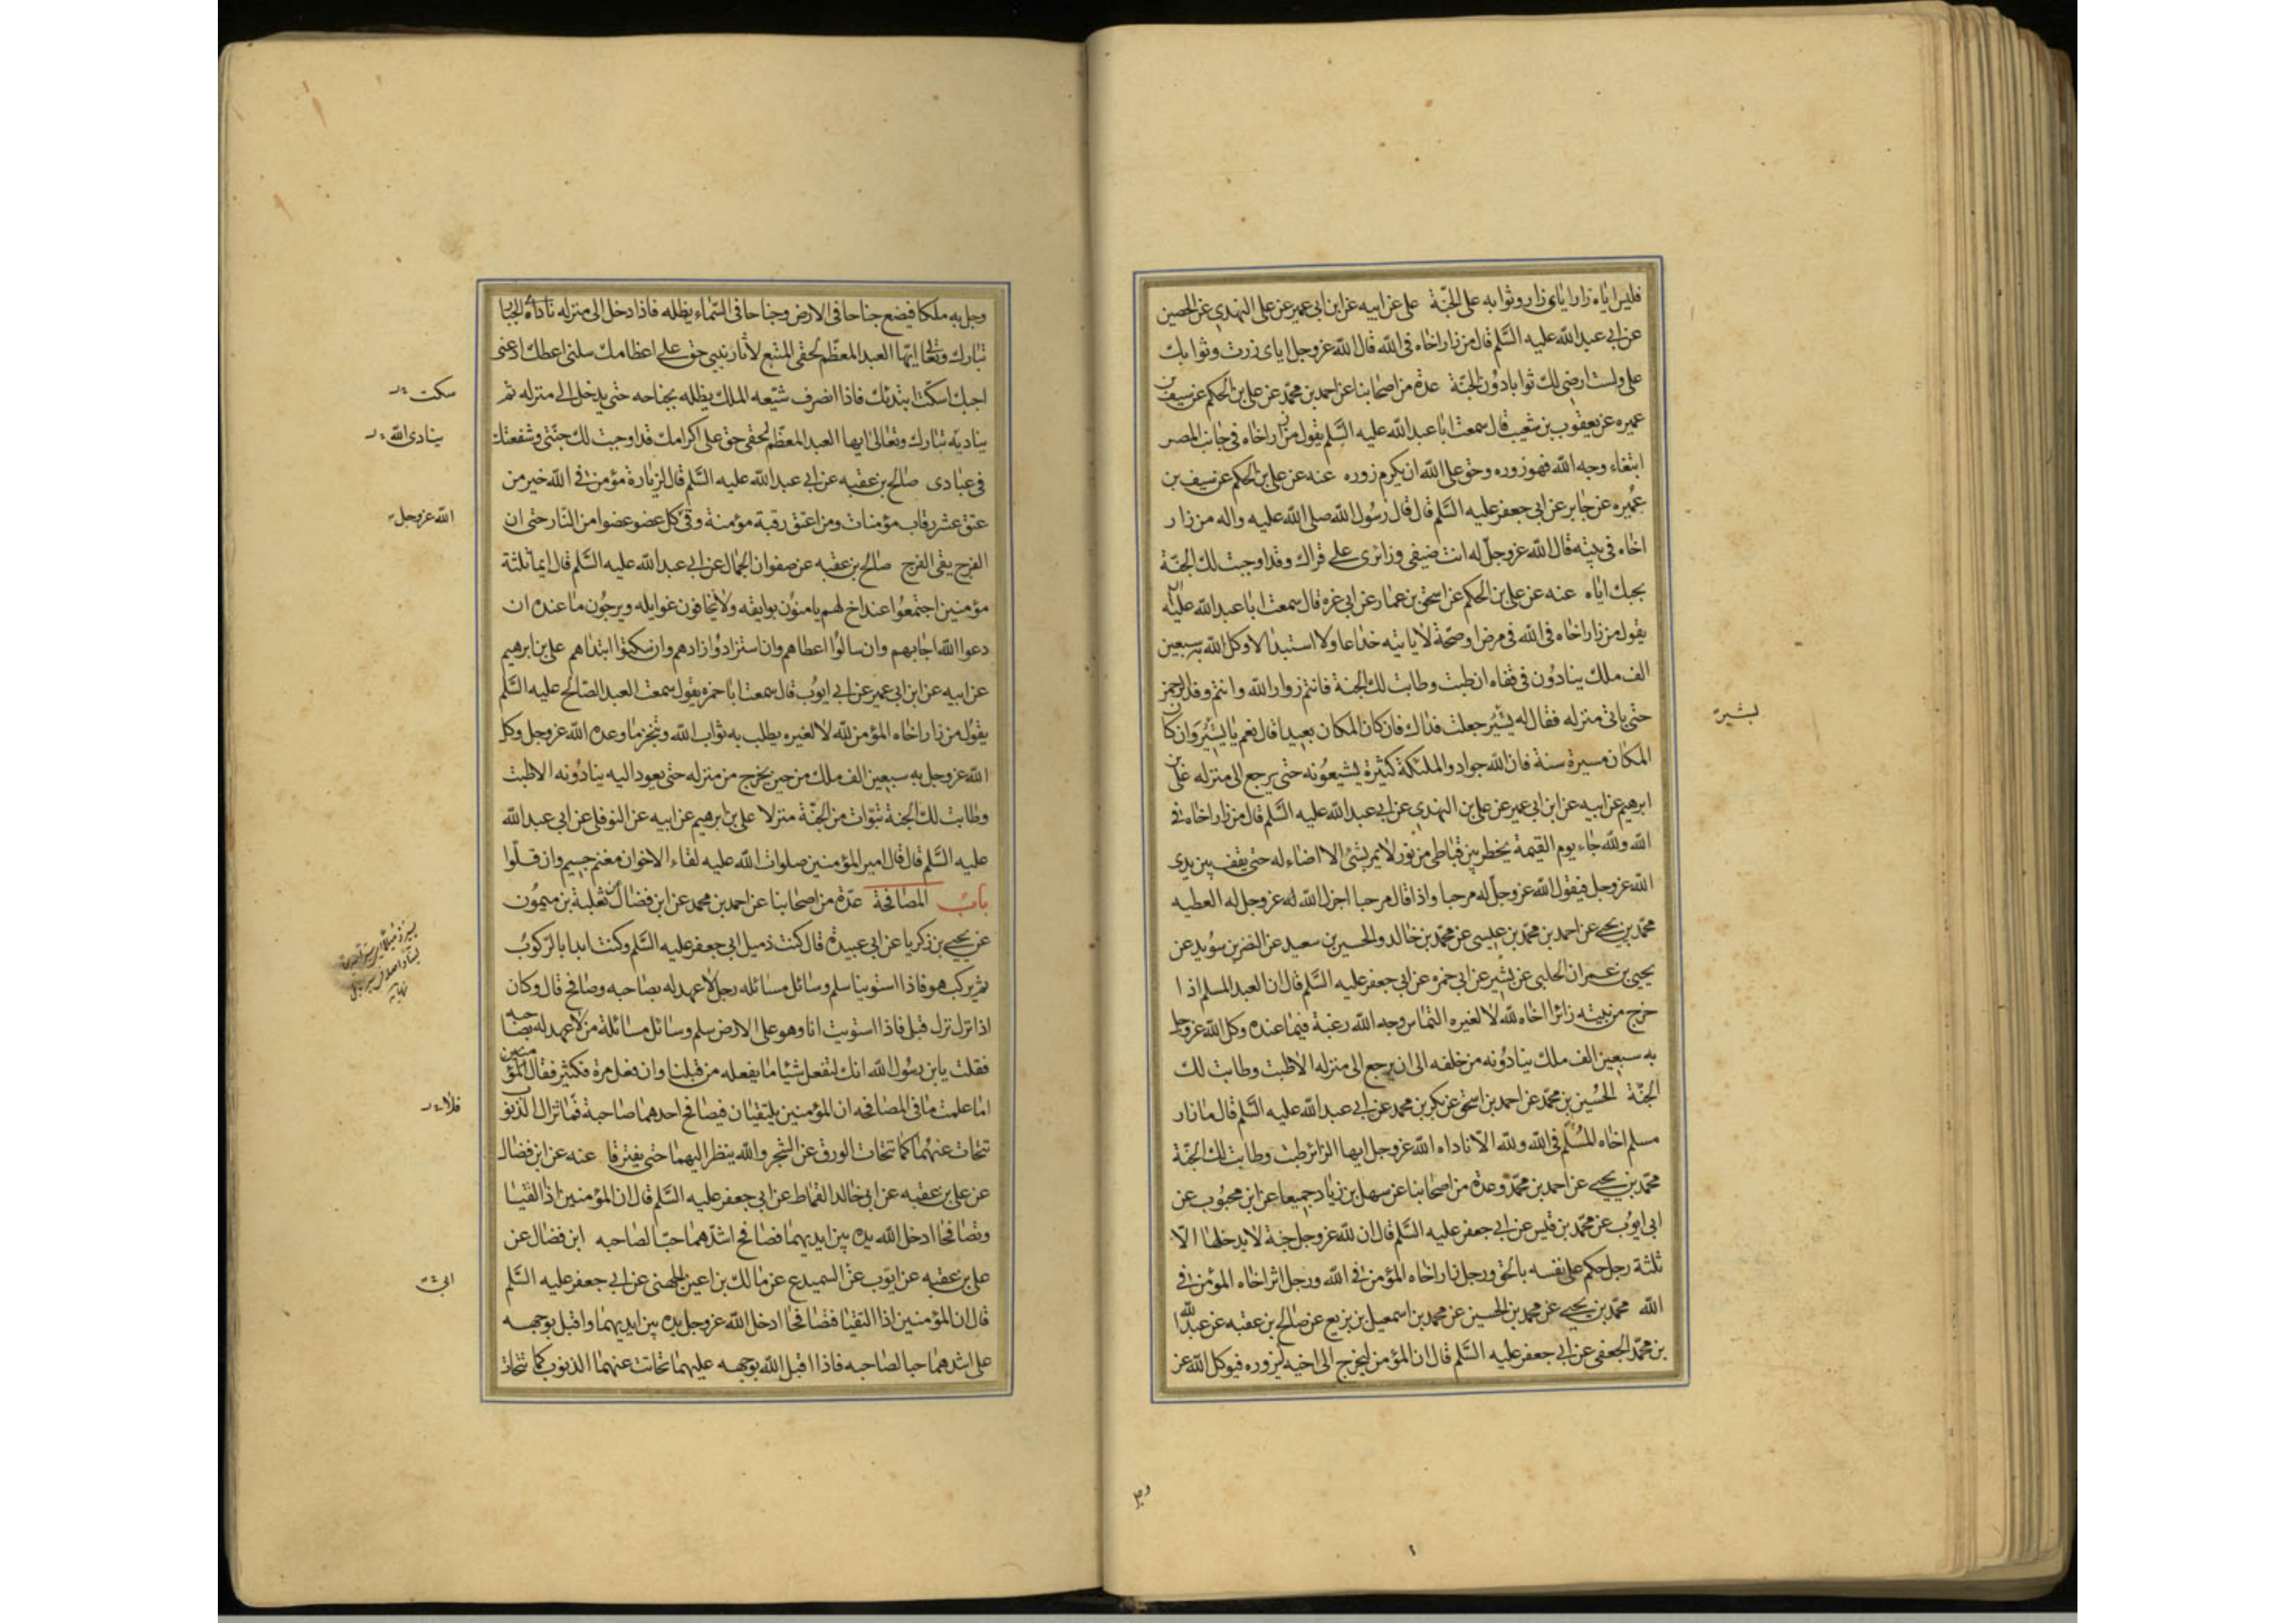 فليس اياه زار اياي زار وثوابه على الجنة علي عن ابيه عن ابن ابي عمير عن علي النهدي عن الحصين
عن ابي عبد الله عليه السلم قال من زار اخاه في الله قال الله عز وجل اياى زرت وثوابك
على ولست ارضى لك ثوابا دون الجنة عدة من اصحابنا عن احمد بن محمد عن علي بن الحكم عن سيف بن
عميره عن يعقوب بن شعيب قال سمعت ابا عبد الله عليه السلم يقول من زار اخاه في جانب المصر
ابتغاء وجه الله فهو زوره وحق على الله ان يكرم زوره عنه عن علي بن الحكم عن سيف بن
عميره عن جابر عن ابي جعفر عليه السلم قال قال رسول الله صلى الله عليه واله من زار
اخاه في بيته قال الله عز وجل له انت ضيفي وزائرى على قراك وقد اوجبت لك الجنة
بحبك اياه عنه عن علي بن الحكم عن اسحق بن عمار عن ابي غره قال سمعت ابا عبد الله عليه
يقول من زار اخاه في الله في مرض او صحة لا ياتيه خداعا ولا استبدالا وكل الله به سبعين
الف ملك ينادون في قفاه ان طبت وطابت لك الجنة فانتم زوار الله وانتم وفد الرحمن
حتى ياتى منزله فقال له يسير جعلت فداك فان كان المكان بعيدا قال نعم يا يسير وان كان
المكان مسيرة سنة فان الله جواد والملئكة كثيرة يشيعونه حتى يرجع الى منزله علي بن
ابرهيم عن ابيه عن ابن ابي عمير عن علي بن النهدي عن ابي عبد الله عليه السلم قال من زار اخاه في
الله ولله جاء يوم القيمة يخطر بين قباطي من نور لا يمر بشئ الا اضاء له حتى يقف بين يدى
الله عز وجل فيقول الله عز وجل له مرحبا واذا قال مرحبا اجزل الله له عز وجل له العطيه
محمد بن يحيى عن احمد بن محمد بن عيسى عن محمد بن خالد والحسين بن سعيد عن النضر بن سويد عن
يحيى بن عمران الحلبي عن بشير عن ابي حمزه عن ابي جعفر عليه السلم قال ان العبد المسلم اذا
خرج من بيته زائرا اخاه لله لا لغيره التماس وجه الله رغبة فيما عنده وكل الله عز وجل
به سبعين الف ملك ينادونه من خلفه الى ان يرجع الى منزله الا طبت وطابت لك
الجنة الحسين بن محمد عن احمد بن اسحق عن بكر بن محمد عن ابي عبد الله عليه السلم قال ما زار
مسلم اخاه المسلم في الله ولله الا ناداه الله عز وجل ايها الزائر طبت وطابت لك الجنة
محمد بن يحيى عن احمد بن محمد وعدة من اصحابنا عن سهل بن زياد جميعا عن ابن محبوب عن
ابى ايوب عن محمد بن قيس عن ابي جعفر عليه السلم قال ان لله عز وجل جنة لا يدخلها الا
ثلثة رجل حكم على نفسه بالحق ورجل زار اخاه المؤمن في الله ورجل اثر اخاه المؤمن في
الله محمد بن يحيى عن محمد بن الحسين عن محمد بن اسمعيل بن بزيع عن صالح بن عقبه عن عبد الله
بن محمد الجعفي عن ابي جعفر عليه السلم قال ان المؤمن ليخرج الى اخيه ليزوره فيوكل الله عز
وجل
وجل به ملكا فيضع جناحا في الارض وجناحا في السماء يظله فاذا دخل الى منزله ناداه الجبار
تبارك وتعالى ايها العبد المعظم لحقي المتبع لاثار نبيي حق علي اعظامك سلني اعطك ادعنى
اجبك اسكت ابتدئك فاذا انصرف شيعه الملك يظله بجناحه حتى يدخل الى منزله ثم
يناديه تبارك وتعالى ايها العبد المعظم لحقي حق علي اكرامك قد اوجبت لك جنتي وشفعتك
في عبادى صالح بن عقبه عن ابي عبد الله عليه السلم قال لزيارة مؤمن في الله خير من
عتق عشر رقاب مؤمنات ومن اعتق رقبة مؤمنة وقى كل عضو عضوا من النار حتى ان
الفرج يقى الفرج صالح بن عقبه عن صفوان الجمال عن ابي عبد الله عليه السلم قال ايما ثلثة
مؤمنين اجتمعوا عند اخ لهم يامنون بوايقه ولا يخافون غوايله ويرجون ما عنده ان
دعوا الله اجابهم وان سالوا اعطاهم وان استزادوا زادهم وان سكتوا ابتداهم علي بن ابرهيم
عن ابيه عن ابن ابي عمير عن ابي ايوب قال سمعت ابا حمزه يقول سمعت العبد الصالح عليه السلم
يقول من زار اخاه المؤمن لله لا لغيره يطلب به ثواب الله وتنجز ما وعده الله عز وجل وكل
الله عز وجل به سبعين الف ملك من حين يخرج من منزله حتى يعود اليه ينادونه الا طبت
وطابت لك الجنة تبوات من الجنة منزلا علي بن ابرهيم عن ابيه عن النوفلي عن ابي عبد الله
عليه السلم قال قال امير المؤمنين صلوات الله عليه لقاء الاخوان مغنم جسيم وان قلوا
باب المصافحة عدة من اصحابنا عن احمد بن محمد عن ابن فضال عن ثعلبة بن ميمون
عن يحيى بن زكريا عن ابي عبيدة قال كنت زميل ابي جعفر عليه السلم وكنت ابدا بالركوب
ثم يركب هو فاذا استوينا سلم وسائل مسائله رجل لا عهد له بصاحبه وصافح قال وكان
اذا نزل نزل قبلي فاذا استويت انا وهو على الارض سلم وسائل مسائلة من لا عهد له بصاحبه
فقلت يابن رسول الله انك لتفعل شيئا ما يفعله من قبلنا وان فعل مرة فكثير فقال
اما علمت ما في المصافحه ان المؤمنين يلتقيان فيصافح احدهما صاحبة فما تزال الذنوب
تتحات عنهما كما تتحات الورق عن الشجر والله ينظر اليهما حتى يفترقا عنه عن ابن فضال
عن علي بن عقبه عن ابي خالد القماط عن ابي جعفر عليه السلم قال ان المؤمنين اذا التقيا
وتصافحا ادخل الله يده بين ايديهما فصافح اشدهما حبا لصاحبه ابن فضال عن
علي بن عقبه عن ايوب عن السميدع عن مالك بن اعين الجهني عن ابي جعفر عليه السلم
قال ان المؤمنين اذا التقيا فتصافحا ادخل الله عز وجل يده بين ايديهما واقبل بوجهه
على اشدهما حبا لصاحبه فاذا اقبل الله بوجهه عليهما تحاتت عنهما الذنوب كما تتحات
سكت
ينادى الله
الله عز وجل